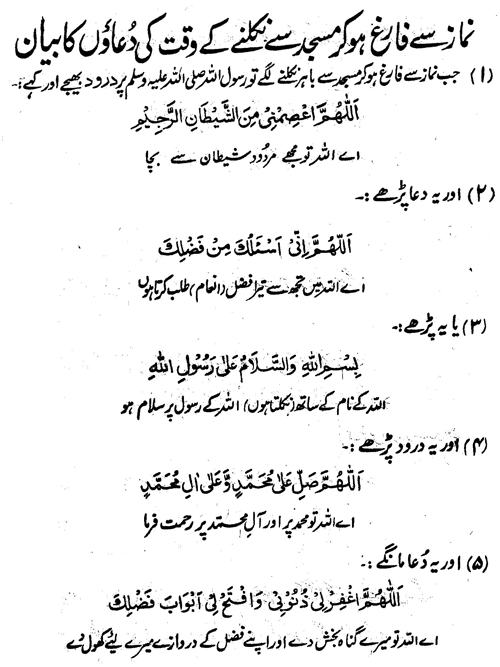 نماز سے فارغ ہو کر مسجد سے نکلنے کے وقت کی دُعاؤں کا بیان
(۱) جب نماز سے فارغ ہو کر مسجد سے باہر نکلنے لگے تو رسول اللہ صلی اللہ علیہ وسلم پر درود بھیجے اور کہے :۔
اَللّٰهُمَّ اعْصِمْنِىْ مِنَ الشَّيْطَانِ الرَّجِيْمِ
اے اللہ تو مجھے مردود شیطان سے بچا
(۲) اور یہ دعا پڑھے :۔
اَللّٰهُمَّ اِنِّىْ اَسْئَلُكَ مِنْ فَضْلِكَ
اے اللہ میں تجھ سے تیرا فضل (انعام) طلب کرتا ہوں
(۳) یا یہ پڑھے :۔
بِسْمِ اللهِ وَالسَّلَامُ عَلٰى رَسُوْلِ اللهِ
اللہ کے نام کے ساتھ (نکلتا ہوں) اللہ کے رسول پر سلام ہو
(۴) اور یہ درود پڑھے :۔
اَللّٰهُمَّ صَلِّ عَلٰى مُحَمَّدٍ وَّعَلٰى اٰلِ مُحَمَّدٍ
اے اللہ تو محمد پر اور آلِ محمد پر رحمت فرما
(۵) اور یہ دُعا مانگے :۔
اَللّٰهُمَّ اغْفِرْ لِىْ ذُنُوْبِىْ وَافْتَحْ لِىْ اَبْوَابَ فَضْلِكَ
اے اللہ تو میرے گناہ بخش دے اور اپنے فضل کے دروازے میرے لئے کھول دے